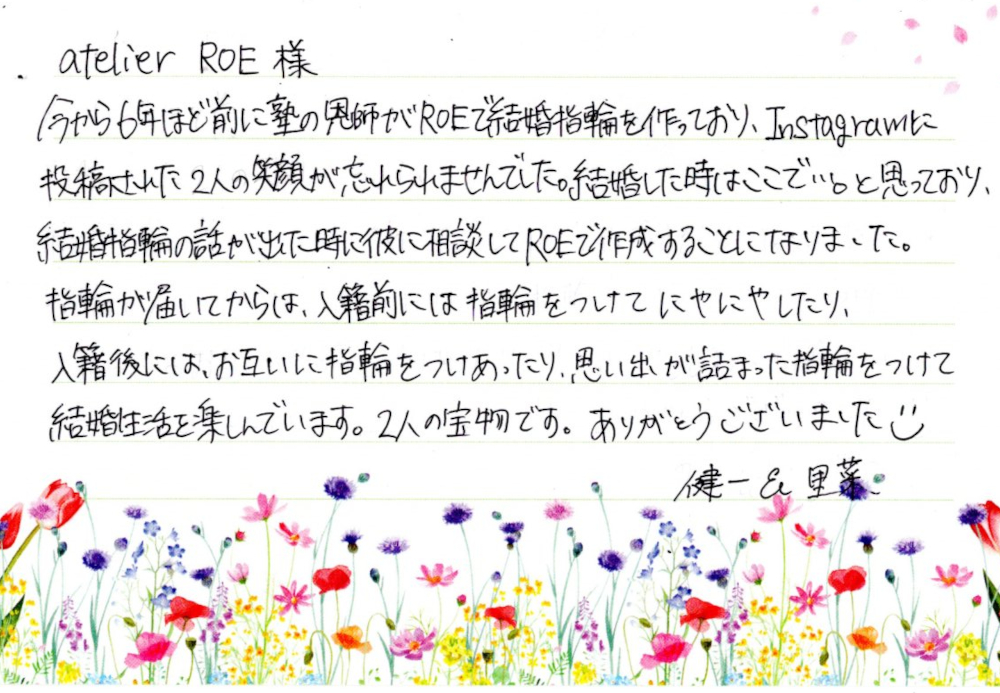 atelier ROE 様
今から6年ほど前に塾の恩師がROEで結婚指輪を作っており、Instagramに
投稿された2人の笑顔が忘れられませんでした。結婚した時はここで…。と思っており、
結婚指輪の話が出た時に彼に相談してROEで作成することになりました。
指輪が届いてからは、入籍前には指輪をつけてにやにやしたり、
入籍後には、お互いに指輪をつけあったり、思い出が詰まった指輪をつけて
結婚生活を楽しんでいます。2人の宝物です。ありがとうございました
健一 & 里菜